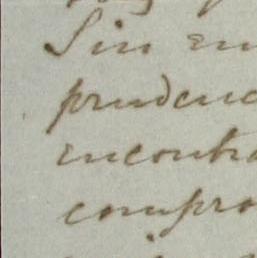 Sin em
prudenc
encontra
compro